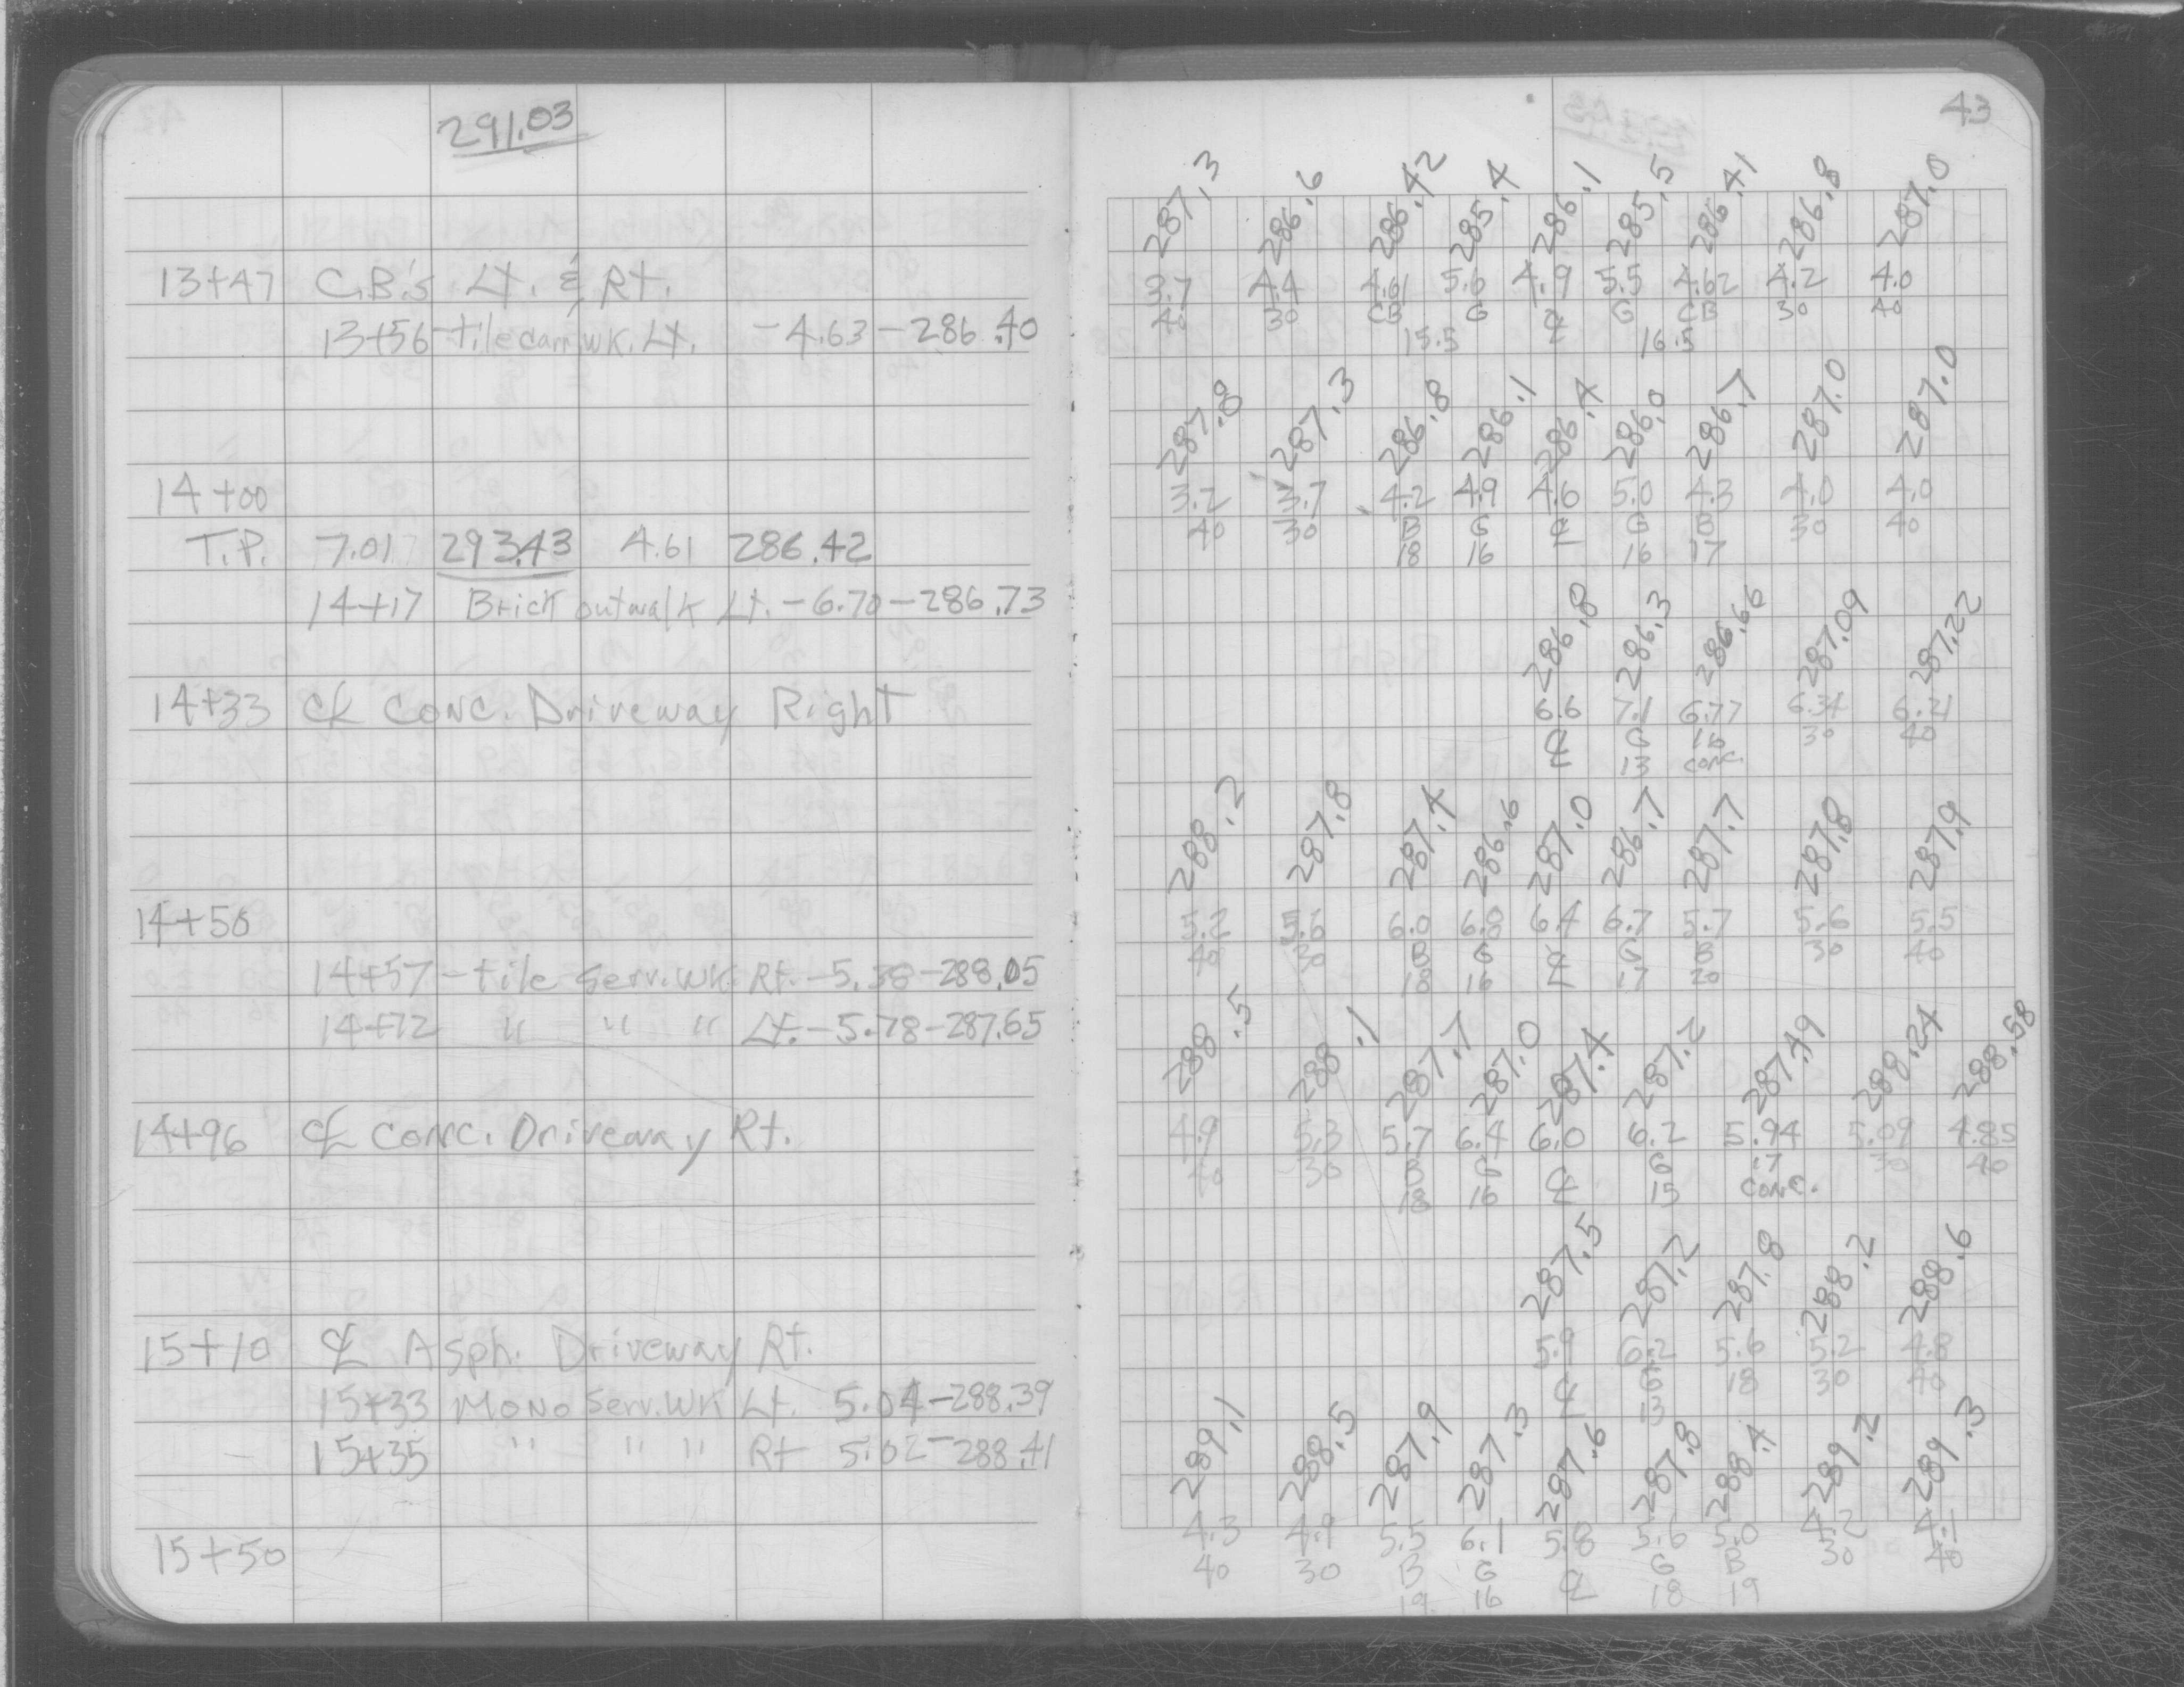 291.03
13+47 C.B.'s Lt. & Rt.
13+56 - tile carr. wk. Lt. - 4.63 - 286.40
14+00
T.P. 7.01 293.43 4.61 286.42
14+17 Brick outwalk Lt. - 6.70 - 286.73
14+33 ℄ Conc. Driveway Right
14+50
14+57 - tile Serv. WK. Rt. - 5.38 - 288.05
14+72 " " " Lt. - 5.78 - 287.65
14+96 ℄ Conc. Driveway Rt.
15+10 ℄ Asph. Driveway Rt.
15+33 Mono Serv. WK Lt. 5.04 - 288.39
15+35 " " " Rt 5.02 - 288.41
15+50
43
287.3 286.6 286.42 285.4 286.1 285.5 286.41 286.8 287.0
3.7 4.4 4.61 5.6 4.9 5.5 4.62 4.2 4.0
40 30 CB G ℄ G CB 30 40
15.5 16.5
287.8 287.3 286.8 286.1 286.4 286.0 286.7 287.0 287.0
3.2 3.7 4.2 4.9 4.6 5.0 4.3 4.0 4.0
40 30 B G ℄ G B 30 40
18 16 16 17
286.8 286.3 286.66 287.09 287.22
6.6 7.1 6.77 6.34 6.21
℄ G 16 30 40
13 conc.
288.2 287.8 287.4 286.6 287.0 286.7 287.7 287.8 287.9
5.2 5.6 6.0 6.8 6.4 6.7 5.7 5.6 5.5
40 30 B G ℄ G B 30 40
18 16 17 20
288.5 288.1 287.7 287.0 287.4 287.2 287.49 288.24 288.58
4.9 5.3 5.7 6.4 6.0 6.2 5.94 5.09 4.85
40 30 B G ℄ G 17 30 40
18 16 15 conc.
287.5 287.2 287.8 288.2 288.6
5.9 6.2 5.6 5.2 4.8
℄ G 18 30 40
13
289.1 288.5 287.9 287.3 287.6 287.8 288.4 289.2 289.3
4.3 4.9 5.5 6.1 5.8 5.6 5.0 4.2 4.1
40 30 B G ℄ G B 30 40
19 16 18 19